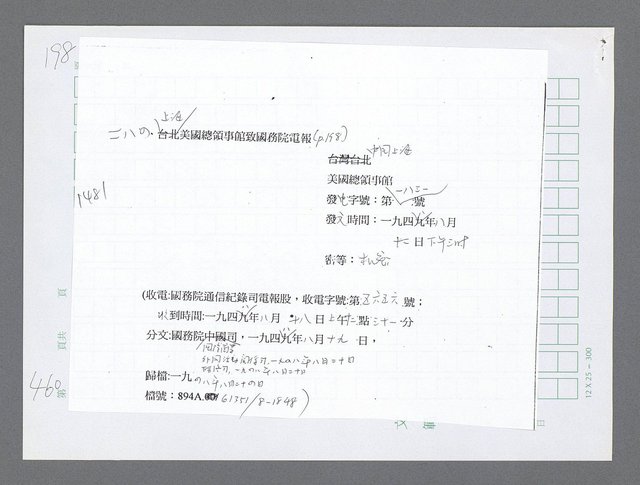 198
上海
二八四.台北美國總領事館致國務院電報(p.158)
中國上海
台灣台北
美國總領事館
1481
發電字號：第一八三一號
發文時間：一九四九年八月
十二日下午三時
密等：機密
(收電:國務院通信紀錄司電報股，收電字號:第五六五六號；
收到時間:一九四九年八月十八日上午 點三十一分
分文:國務院中國司，一九四九年八月十九日，
一九四八年八月二十日
一九四八年八月二十日
歸檔:一九四八年八月二十四日
檔號：894A.00/61351/8-1848)
頁
頁共
第
460
12 X 25 = 300